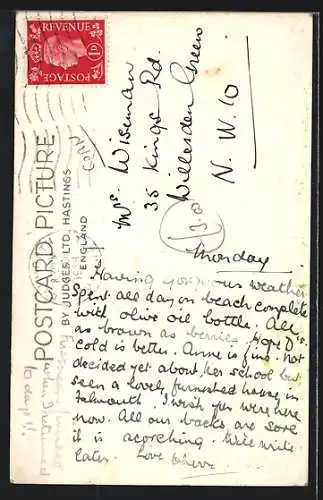 POSTAGE
REVENUE
1D
POSTCARD PICTURE
BY JUDGES LTD., HASTINGS
ENGLAND
Mrs Wiseman
35 Kings Rd.
Willesden Green
N.W.10
Monday
Having glorious weather
Spent all day on beach complete
with olive oil bottle. All
as brown as berries. Hope D's
cold is better. Anne is fine. Not
decided yet about her school but
seen a lovely furnished house in
Falmouth. I wish you were here
now. All our backs are sore
it is scorching. Will write
later. Love